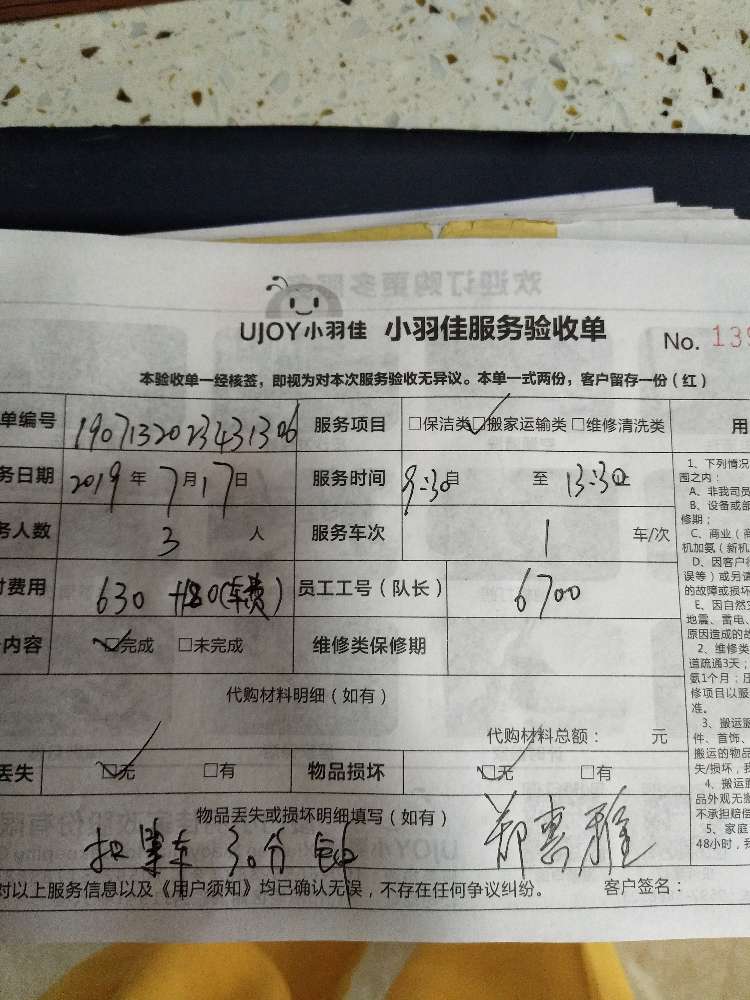 UJOY小羽佳 小羽佳服务验收单 No. 139
本验收单一经核签，即视为对本次服务验收无异议。本单一式两份，客户留存一份（红）
单编号 1907132023431306 服务项目 □保洁类 □搬家运输类 □维修清洗类
务日期 2019年7月17日 服务时间 9:30自 至 13:30止
务人数 3 人 服务车次 1 车/次
付费用 630 +180(车费) 员工工号（队长） 6700
内容 □完成 □未完成 维修类保修期
代购材料明细（如有）
代购材料总额： 元
丢失 □无 □有 物品损坏 □无 □有
物品丢失或损坏明细填写（如有）
30分 郑惠雅
对以上服务信息以及《用户须知》均已确认无误，不存在任何争议纠纷。 客户签名：
用
1、下列情况
围之内：
A、非我司员
B、设备或部
修期；
C、商业（商
机加氨（新机
D、因客户
误等）或另请
的故障或损坏
E、因自然
地震、雷电、
原因造成的故
2、维修类
道疏通3天；
氨1个月；压
修项目以服
准。
3、搬运服
件、首饰、
搬运的物品
失/损坏，我
4、搬运
品外观无
不承担赔偿
5、家庭
48小时，我